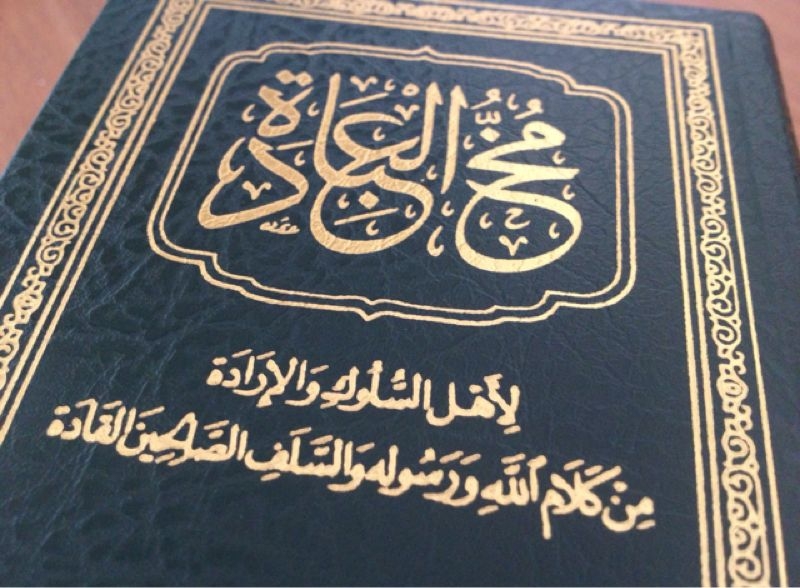 مُخُّ العِبَادَة
لِأَهْلِ السُّلُوكِ وَالإِرَادَة
مِنْ كَلَامِ اللَّهِ وَرَسُولِهِ وَالسَّلَفِ الصَّالِحِينَ القَادَة